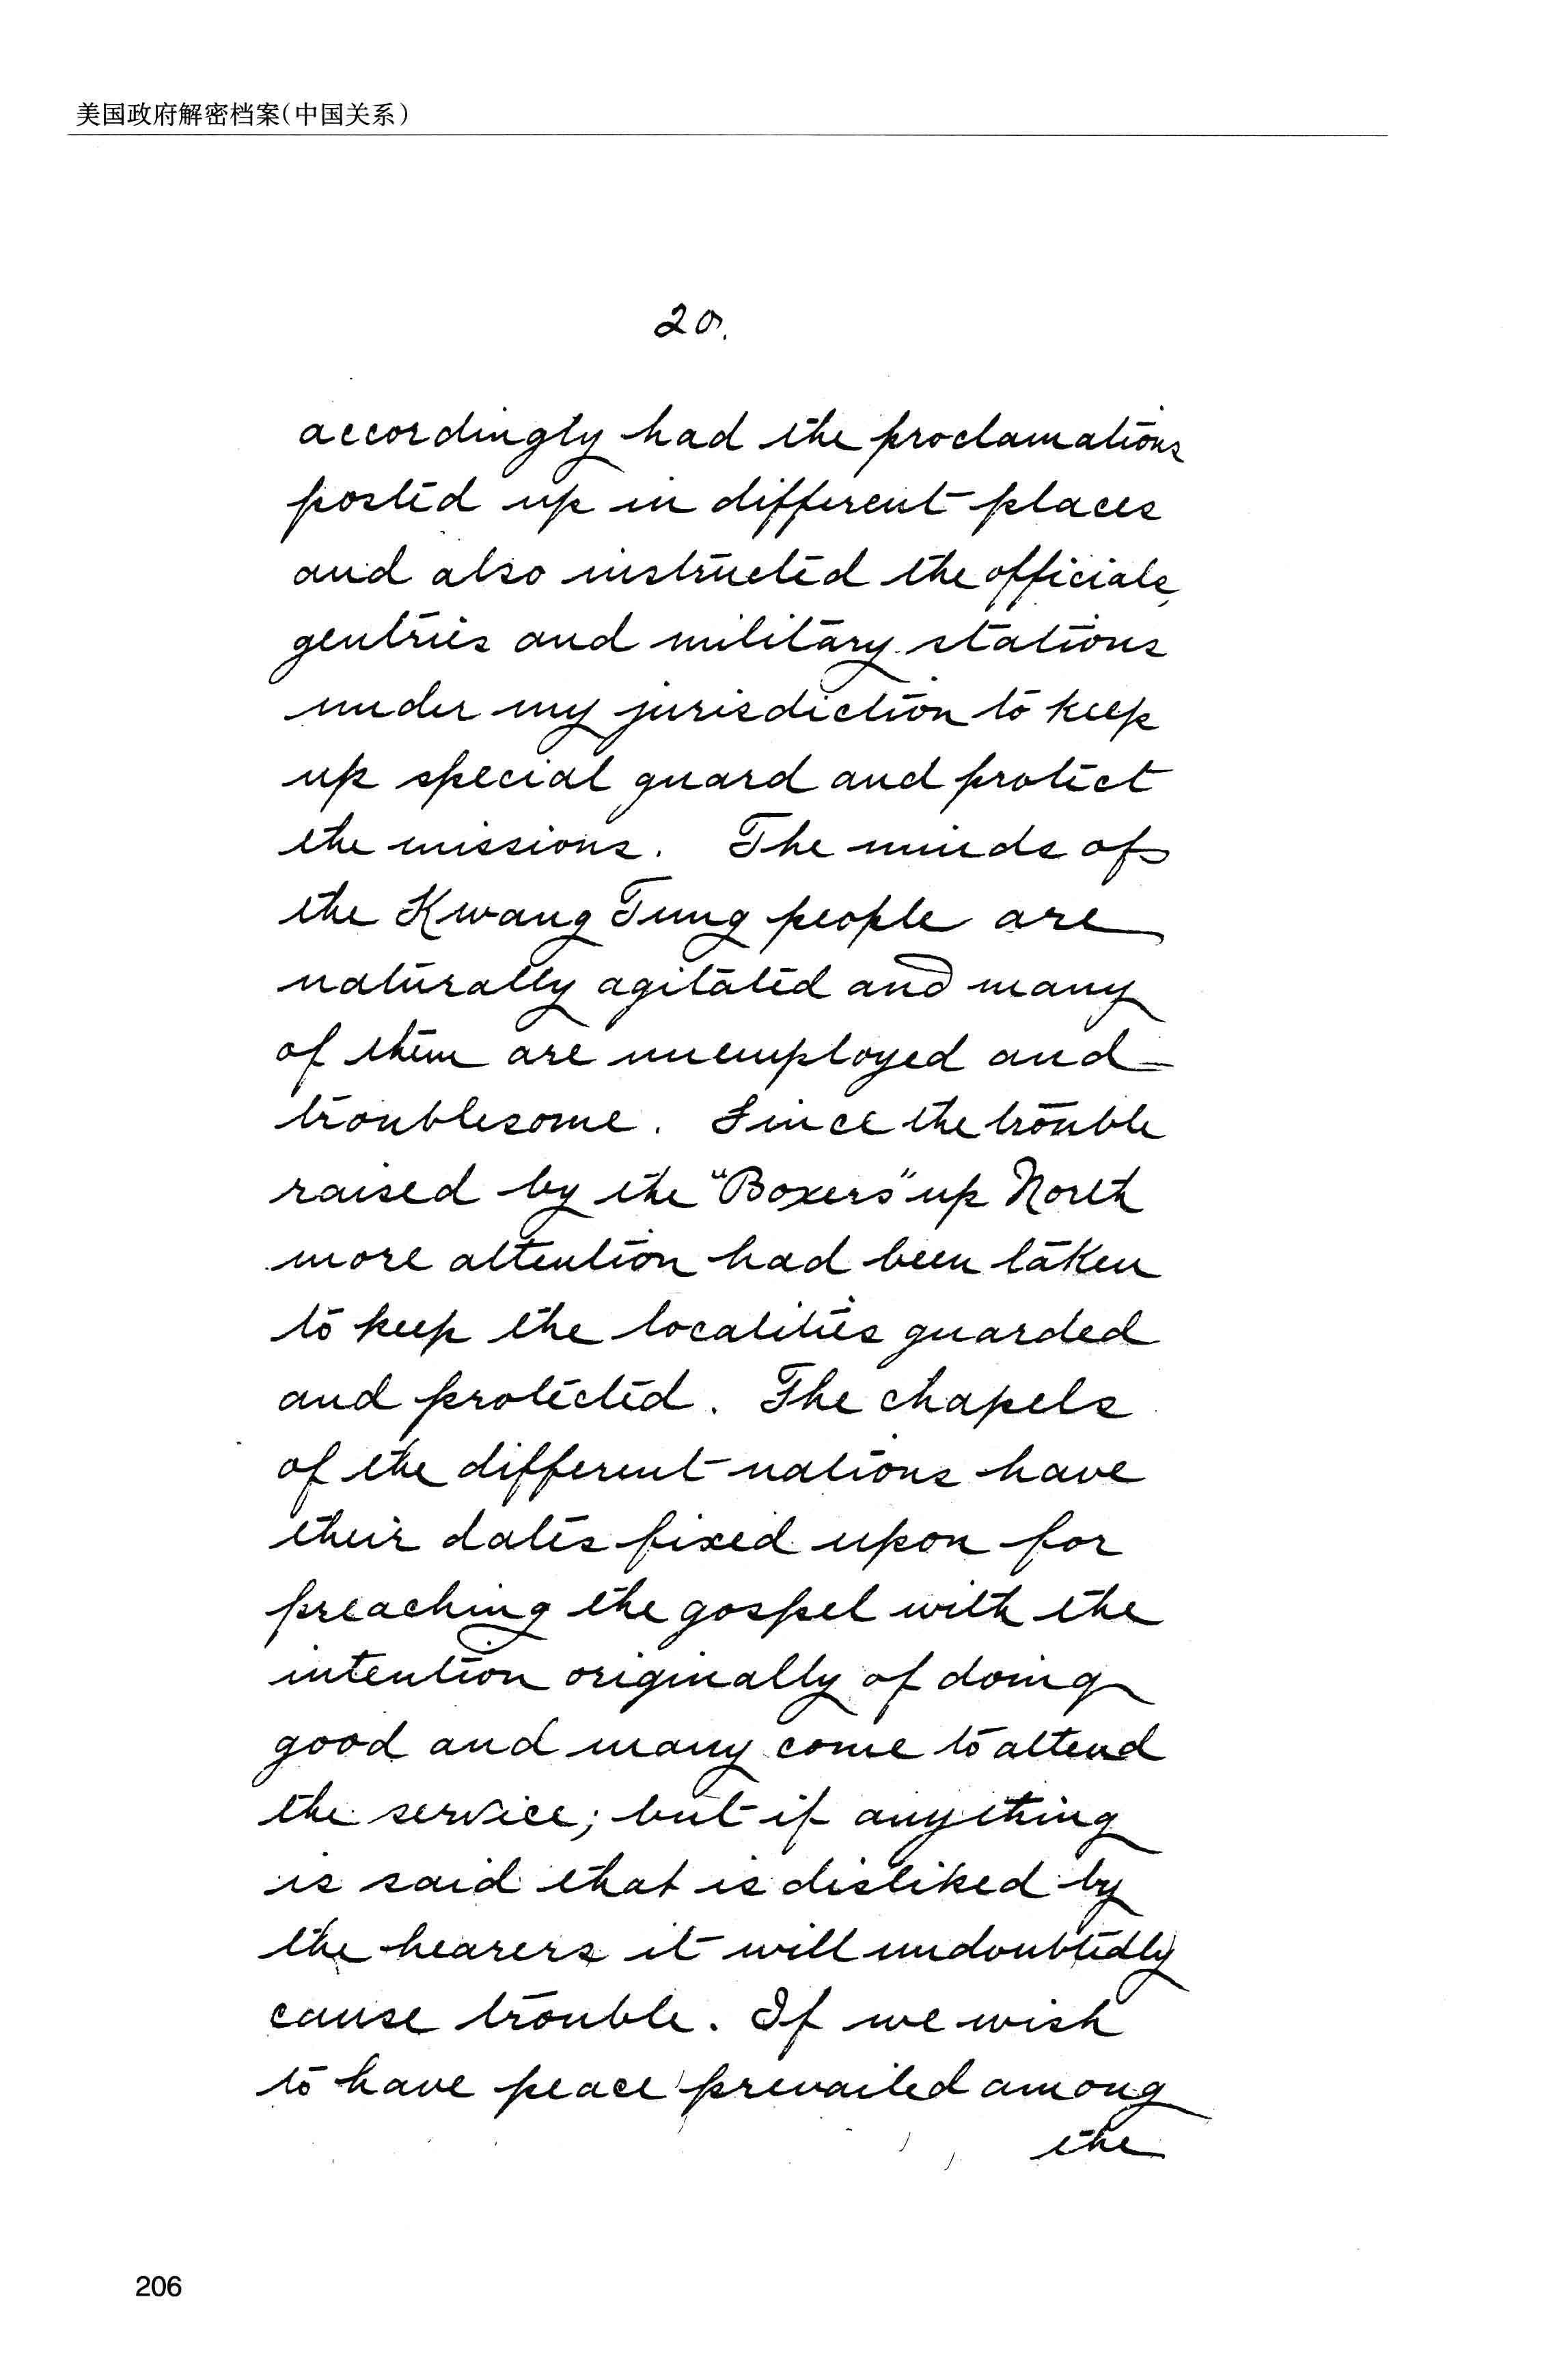 美国政府解密档案(中国关系)
20.
accordingly had the proclamations
posted up in different places
and also instructed the officials,
gentries and military stations
under my jurisdiction to keep
up special guard and protect
the missions. The minds of
the Kwang Tung people are
naturally agitated and many
of them are unemployed and
troublesome. Since the trouble
raised by the "Boxers" up North
more attention had been taken
to keep the localities guarded
and protected. The chapels
of the different nations have
their dates fixed upon for
preaching the gospel with the
intention originally of doing
good and many come to attend
the service; but if anything
is said that is disliked by
the hearers it will undoubtedly
cause trouble. If we wish
to have peace prevailed among
the
206